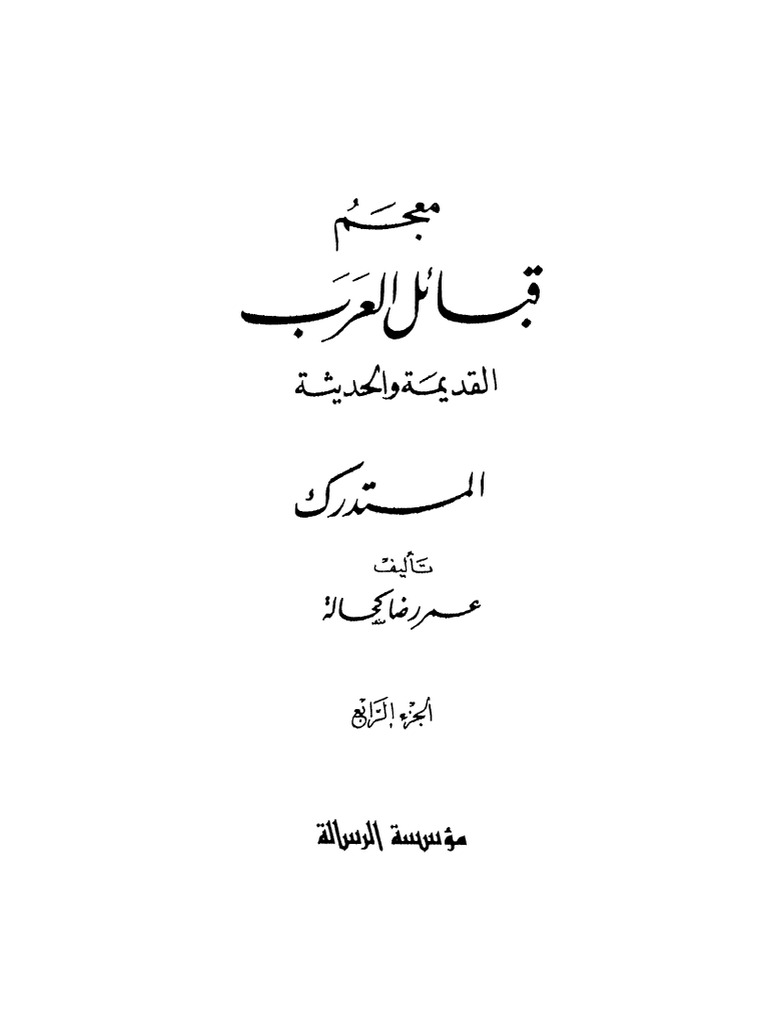 معجم
قبائل العرب
القديمة والحديثة
المستدرك
تأليف
عمر رضا كحالة
الجزء الرابع
مؤسسة الرسالة